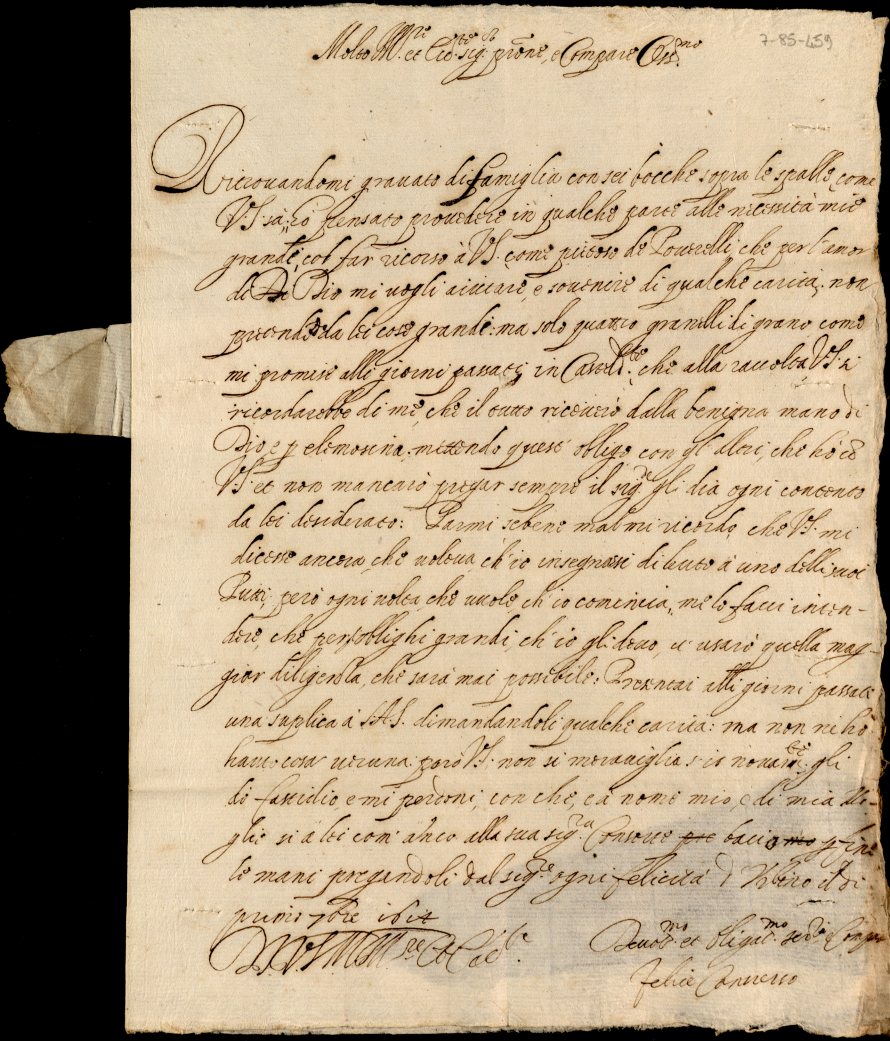 7-85-459
Molto Ill.re et Ecc.te sig.r prone, e Compare Oss.mo
Ritrovandomi gravato di famiglia con sei bocche sopra le spalle come
V.S. sà, hò pensato provedere in qualche parte alle necessità mie
grande, col far ricorso à V.S. come pietoso de Poverelli, che per l'amor
di Dio mi vogli aiutare, e sovenire di qualche carità, non
pretendo da lei cose grande: ma solo quattro granelli di grano come
mi promise alli giorni passati in Casteld.te che alla raccolta V.S. si
ricordarebbe di me, che il tutto riceverò dalla benigna mano di
Dio, e p elemosina, mettendo quest' obligo con gl' altri, che hò cõ
V.S. et non mancarò pregar sempre il sig.re gli dia ogni contento
da lei desiderato: Parmi sebene mal mi ricordo, che V.S. mi
dicesse ancora, che voleva, ch'io insegnassi di liuto à uno delli suoi
Putti, però ogni volta, che vuole, ch'io comincia, me lo facci inten-
dere, che per oblighi grandi, ch'io gli devo, vi usarò quella mag-
gior diligenza, che sarà mai possibile: Presentai alli giorni passati
una suplica à S.A.S. dimandandoli qualche carità: ma non ni hò
haut. cosa veruna però V.S. non si meraviglia s'io novam.te gli
dò fastidio, e mi perdoni, con che, e à nome mio, e di mia Mo-
glie si à lei com' anco alla sua sig.ra Consorte bacio p fine
le mani pregandoli dal sig.re ogni felicità d Urbino il dì
primo 7bre
D. V.S. M. Ill.re et Ecc.te
Devot.mo et obligat.mo ser.re Compare
Felice